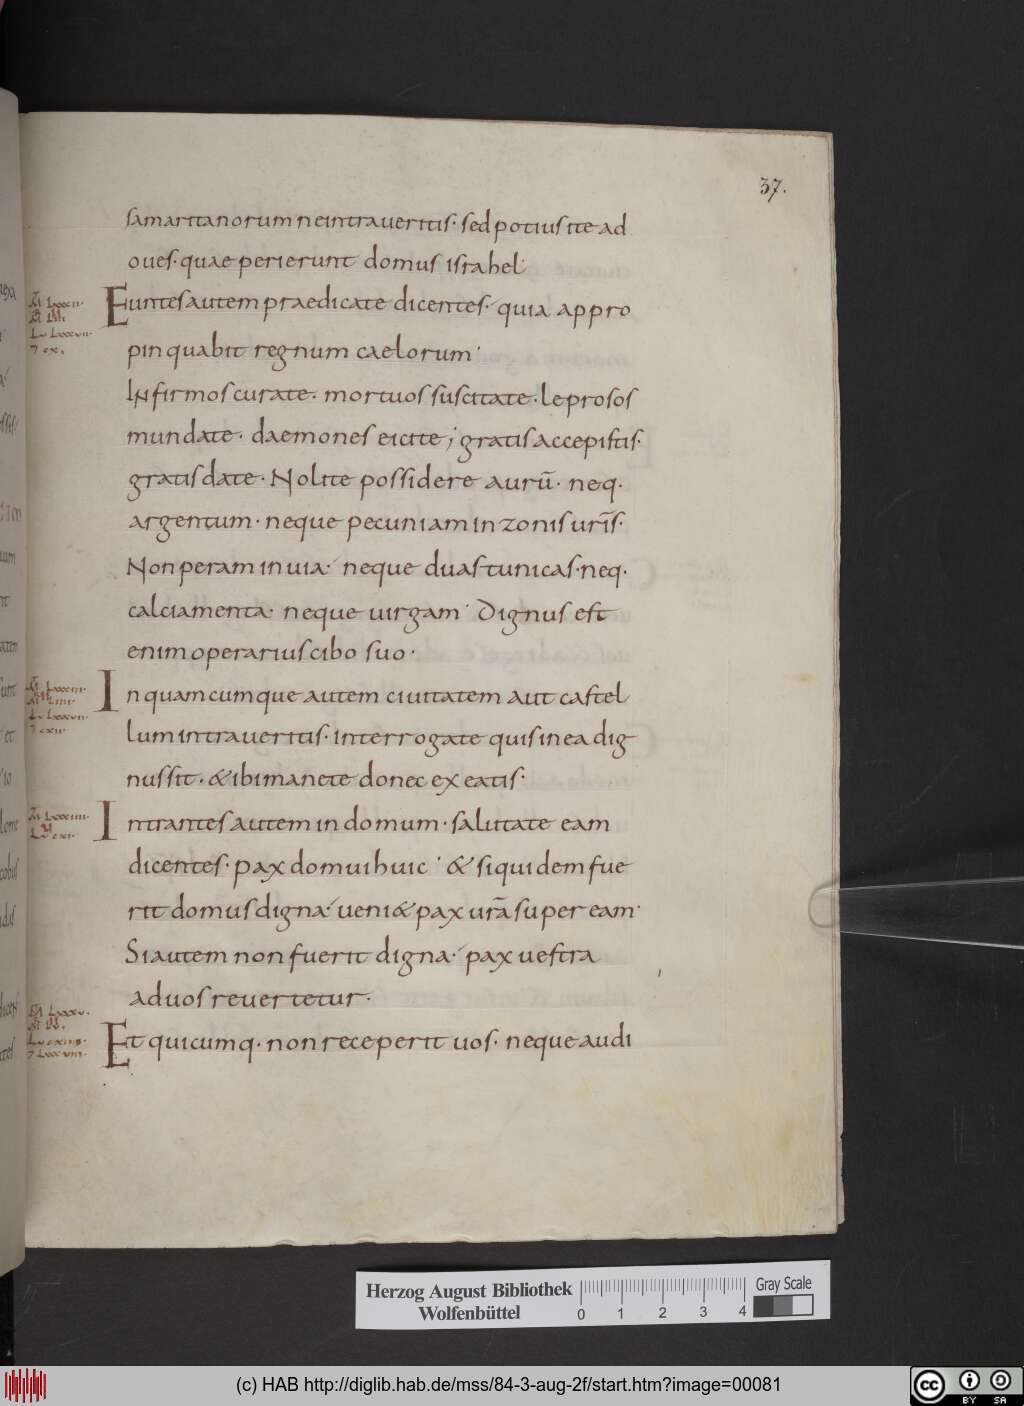 37.
samaritanorum ne intraveritis· sed potius ite ad
oues· quae perierunt domus israhel·
Euntes autem praedicate dicentes· quia appro
pinquabit regnum caelorum·
Infirmos curate· mortuos suscitate· leprosos
mundate· daemones eicite; gratis accepistis·
gratis date· Nolite possidere aurū· neq·
argentum· neque pecuniam in zonis ur̄is·
Non peram in uia· neque duas tunicas· neq·
calciamenta· neque uirgam· Dignus est
enim operarius cibo suo·
In quamcumque autem ciuitatem aut castel
lum intraueritis· interrogate quis in ea dig
nus sit· & ibi manete donec exeatis·
Intrantes autem in domum· salutate eam
dicentes· pax domui huic· & siquidem fue
rit domus digna· ueni& pax urā super eam·
Si autem non fuerit digna· pax uestra
ad uos reuertetur·
Et quicumq· non receperit uos· neque audi
Herzog August Bibliothek
Wolfenbüttel
0 1 2 3 4
Gray Scale
(c) HAB http://diglib.hab.de/mss/84-3-aug-2f/start.htm?image=00081
cc BY SA